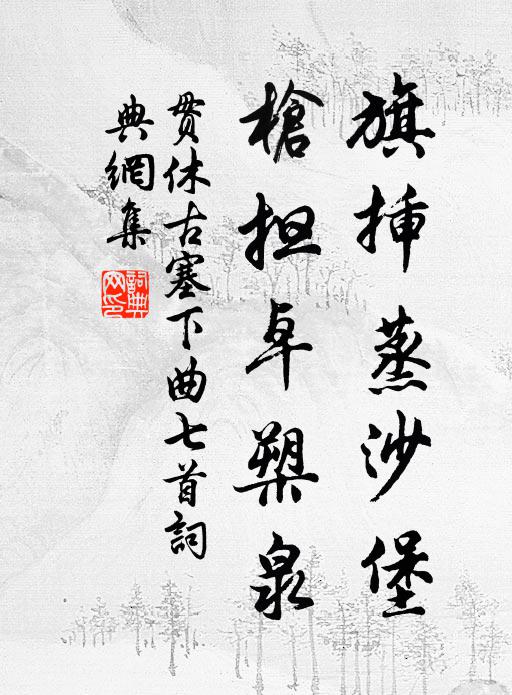 旗插蒸沙堡
槍担卓槊泉
貫休古塞下曲七首詞
典網集
詞典网印